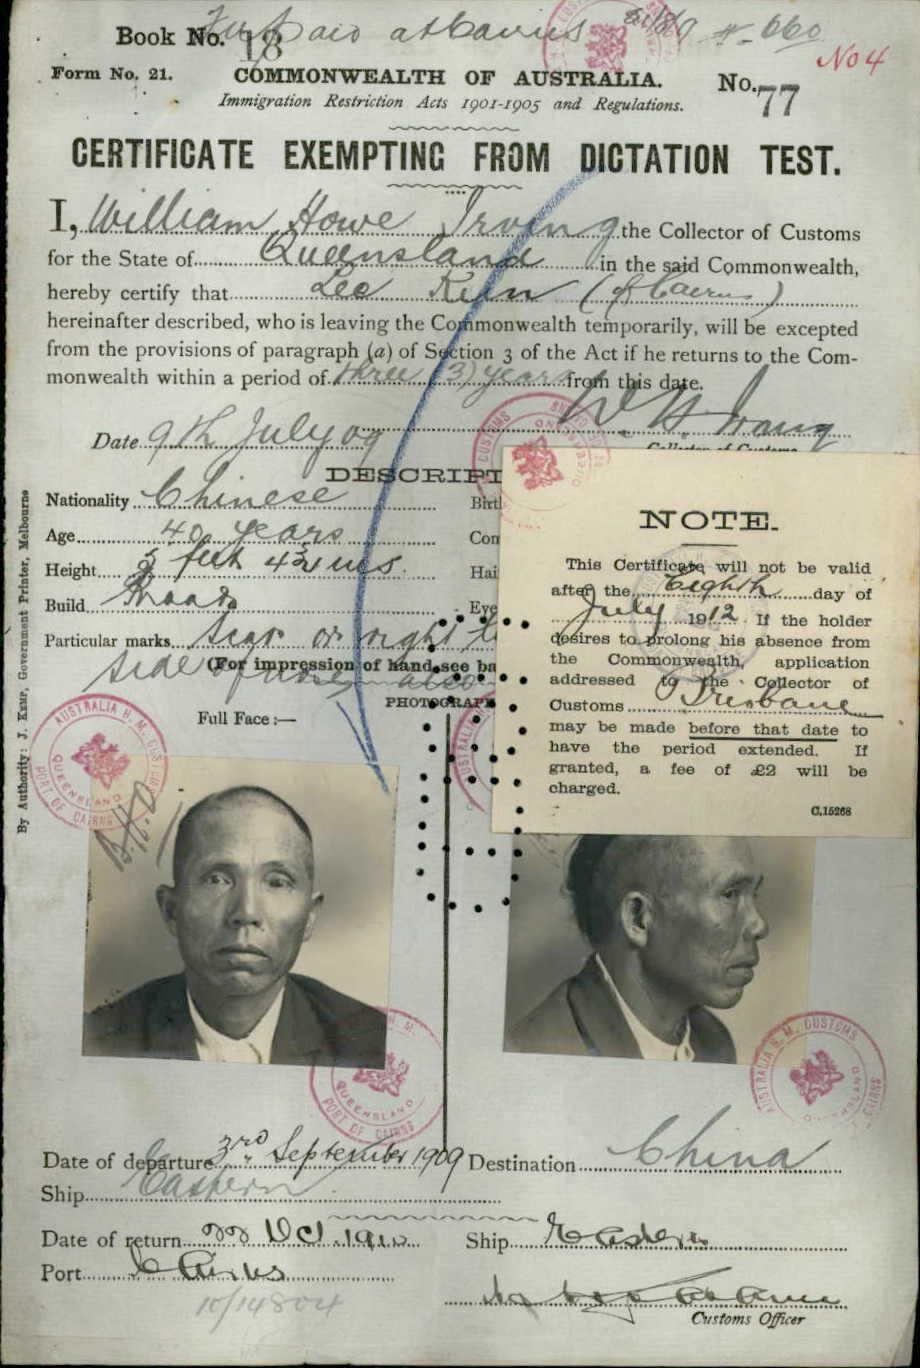 Book No. 18
Fee paid at Cairns
No 4
Form No. 21.
COMMONWEALTH OF AUSTRALIA.
No. 77
Immigration Restriction Acts 1901-1905 and Regulations.
CERTIFICATE EXEMPTING FROM DICTATION TEST.
I, William Howe Irving the Collector of Customs
for the State of Queensland in the said Commonwealth,
hereby certify that Lee Kun (of Cairns)
hereinafter described, who is leaving the Commonwealth temporarily, will be excepted
from the provisions of paragraph (a) of Section 3 of the Act if he returns to the Com-
monwealth within a period of three (3) years from this date.
W. H. Irving
Date 9th July 09
Collector of Customs
DESCRIPT
Nationality Chinese
Age 40 years
Height 5 feet 4 3/4 ins
Build Broad
Particular marks Scar on right
side of nose, also
(For impression of hand see ba
PHOTOGRAPH
Birth
Con
Hai
Eye
NOTE.
This Certificate will not be valid
after the Eighth day of
July 1912. If the holder
desires to prolong his absence from
the Commonwealth, application
addressed to the Collector of
Customs Brisbane
may be made before that date to
have the period extended. If
granted, a fee of £2 will be
charged.
C.15268
Full Face :—
By Authority: J. KEMP, Government Printer, Melbourne
AUSTRALIA H. M. CUSTOMS
QUEENSLAND
PORT OF CAIRNS
H. M.
QUEENSLAND
PORT OF CAIRNS
AUSTRALIA H. M. CUSTOMS
QUEENSLAND
CAIRNS
Date of departure 3rd September 1909
Destination China
Ship Eastern
Date of return 22 Oct 1910
Ship Eastern
Port Cairns
10/14804
Customs Officer